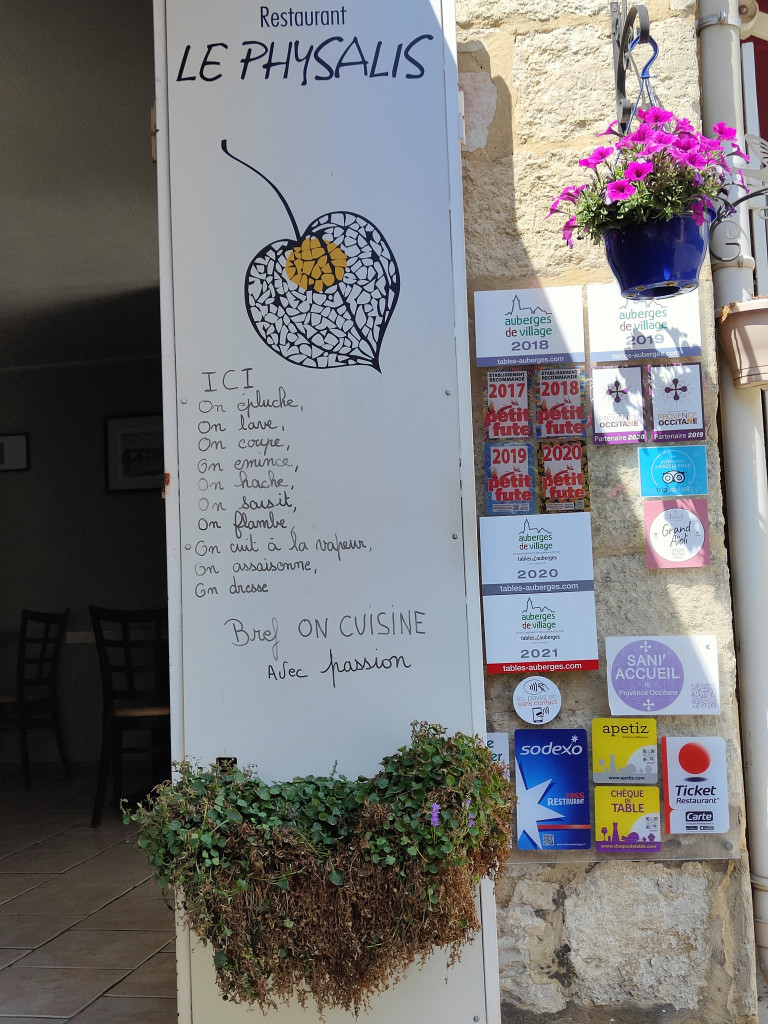 Restaurant
LE PHYSALIS
ICI
On épluche,
On lave,
On coupe,
On émince,
On hache,
On saisit,
On flambe,
On cuit à la vapeur,
On assaisonne,
On dresse
Bref ON CUISINE
Avec passion
auberges
de village
2018
tables-auberges.com
auberges
de village
2019
tables-auberges.com
ETABLISSEMENT
RECOMMANDÉ
2017
petit
fute
ETABLISSEMENT
RECOMMANDÉ
2018
petit
fute
PROVENCE
OCCITANE
Partenaire 2020
PROVENCE
OCCITANE
Partenaire 2019
2019
petit
fute
2020
petit
fute
Grand
Aïoli
2020
auberges
de village
tables & auberges
2020
tables-auberges.com
auberges
de village
2021
tables-auberges.com
SANI'
ACCUEIL
le
Provence Occitane
Ici, payez en
sans contact
sodexo
pass
RESTAURANT
apetiz
www.apetiz.com
CHÈQUE
DE TABLE
www.chequedetable.com
Ticket
Restaurant
Carte